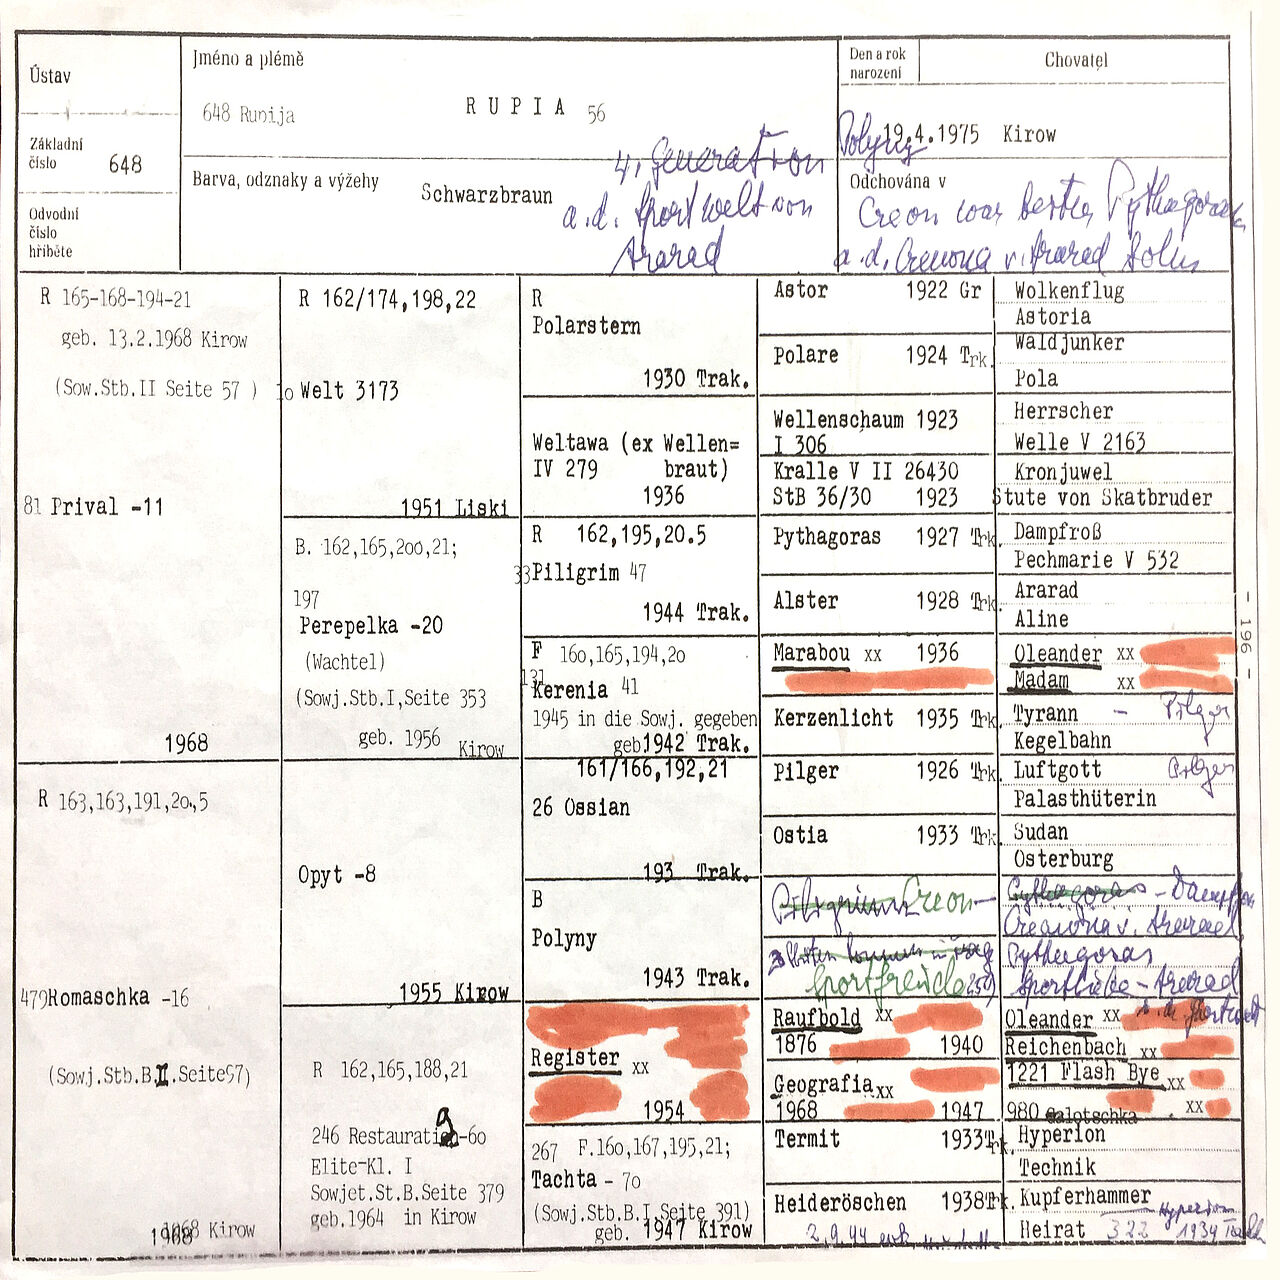 Ústav
Jméno a plémě
648 Runija
R U P I A 56
Den a rok
narození
Chovatel
Základní
číslo 648
Polyny 19.4.1975 Kirow
Barva, odznaky a výžehy
Schwarzbraun
4. Generation
a.d. Sportwelt von
Ararad
Odchována v
Creon war bester Pythagoras
a.d. Creuona v. Ararad Sohn
Odvodní
číslo
hříběte
R 165-168-194-21
geb. 13.2.1968 Kirow
(Sow.Stb.II Seite 57 )
81 Prival -11
1968
R 163,163,191,20,5
479 Romaschka -16
(Sowj.Stb.B.II.Seite97)
1968 Kirow
R 162/174,198,22
10 Welt 3173
1951 Liski
B. 162,165,200,21;
197
Perepelka -20
(Wachtel)
(Sowj.Stb.I,Seite 353
geb. 1956 Kirow
Opyt -8
1955 Kirow
R 162,165,188,21
246 Restauration-60
Elite-Kl. I
Sowjet.St.B.Seite 379
geb.1964 in Kirow
R
Polarstern
1930 Trak.
Weltawa (ex Wellen=
IV 279 braut)
1936
R 162,195,20.5
33 Piligrim 47
1944 Trak.
F 160,165,194,20
131
Kerenia 41
1945 in die Sowj. gegeben
geb.1942 Trak.
161/166,192,21
26 Ossian
193 Trak.
B
Polyny
1943 Trak.
Register xx
1954
267 F.160,167,195,21;
Tachta - 70
(Sowj.Stb.B.I.Seite 391)
geb. 1947 Kirow
Astor 1922 Gr
Polare 1924 Trk.
Wellenschaum 1923
I 306
Kralle V II 26430
StB 36/30 1923
Pythagoras 1927 Trk.
Alster 1928 Trk.
Marabou xx 1936
Kerzenlicht 1935 Trk.
Pilger 1926 Trk.
Ostia 1933 Trk.
Piligrim Creon
Sportfreude
Raufbold xx
1876 1940
Geografia xx
1968 1947
Termit 1933Trk.
Heideröschen 1938Trk.
2.9.44
Wolkenflug
Astoria
Waldjunker
Pola
Herrscher
Welle V 2163
Kronjuwel
Stute von Skatbruder
Dampfroß
Pechmarie V 532
Ararad
Aline
Oleander xx
Madam xx
Tyrann - Pilger
Kegelbahn
Luftgott Pilger
Palasthüterin
Sudan
Osterburg
Pythagoras - Dampfross
Creauona v. Ararad
Pythagoras
Sportliebe - Ararad
Oleander xx
Reichenbach xx
1221 Flash Bye xx
980 Galotschka xx
Hyperion
Technik
Kupferhammer
Hyperion
Heirat 322 1934
- 196 -